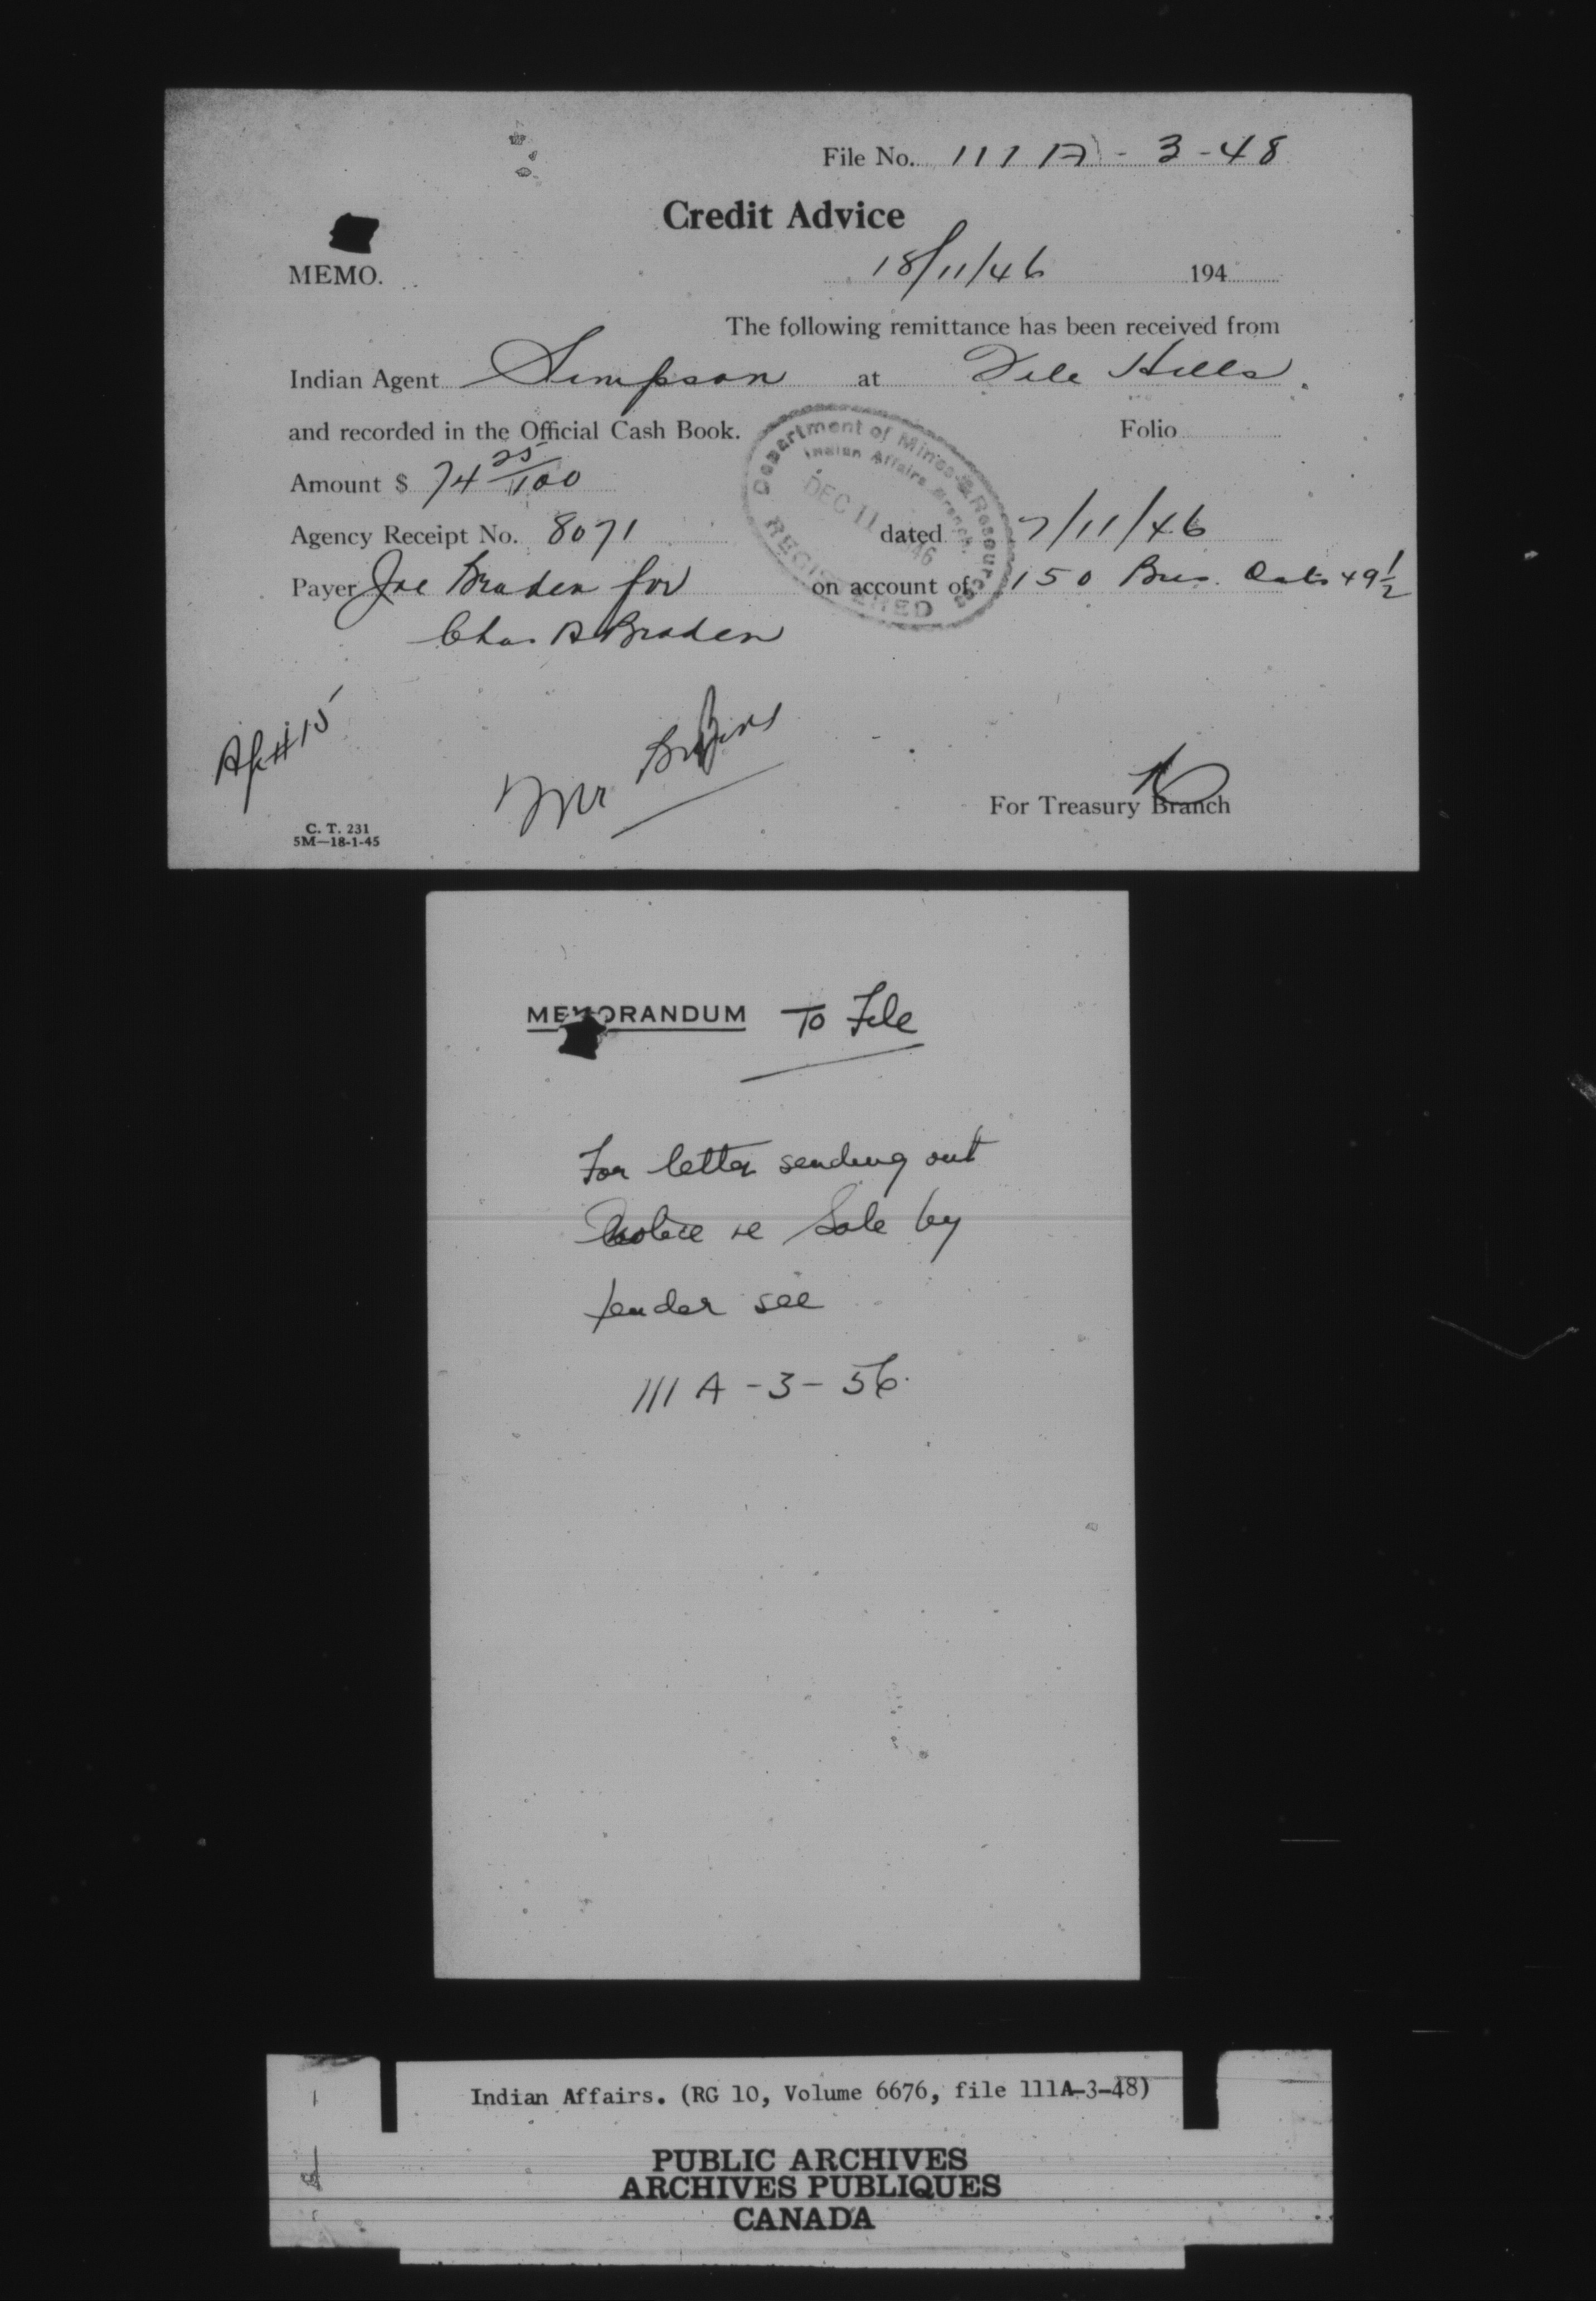 File No. 111 A - 3 - 48
Credit Advice
MEMO.
18/11/46 194
The following remittance has been received from
Indian Agent Simpson at File Hills.
and recorded in the Official Cash Book. Folio
Amount $ 74 25/100
Agency Receipt No. 8071 dated 7/11/46
Payer Joe Braden for on account of 150 Bus. Oats 49 1/2
Chas A Braden
Department of Mines & Resources
Indian Affairs Branch.
DEC 11 1946
REGISTERED
#15
Mr
For Treasury Branch
C. T. 231
5M—18-1-45
MEMORANDUM To File
For letter sending out
Notice re Sale by
tender see
111 A - 3 - 56.
Indian Affairs. (RG 10, Volume 6676, file 111A-3-48)
PUBLIC ARCHIVES
ARCHIVES PUBLIQUES
CANADA